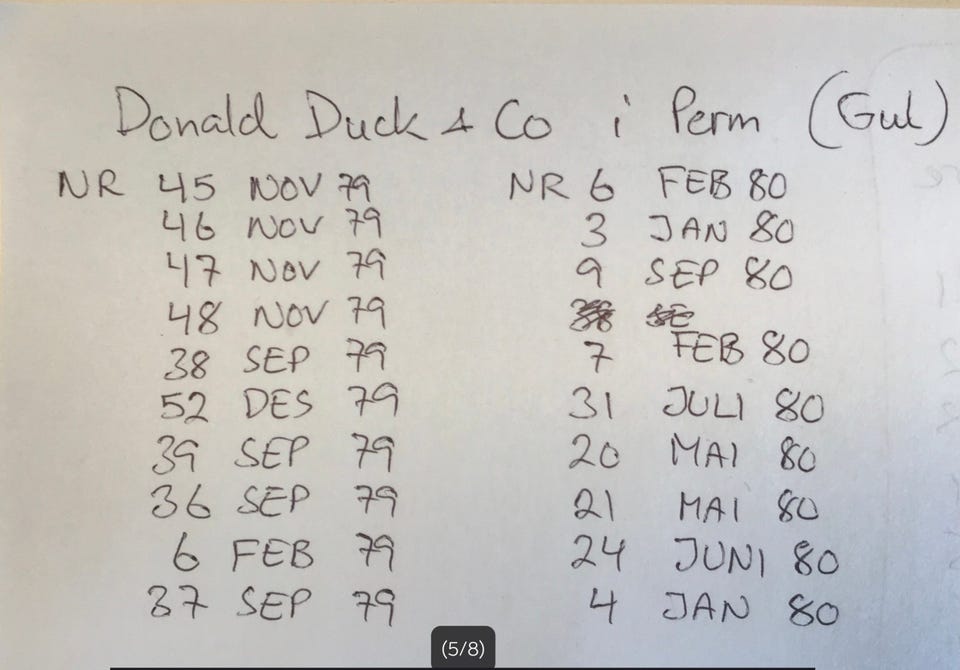 Donald Duck & Co i Perm (Gul)
NR 45 NOV 79
46 NOV 79
47 NOV 79
48 NOV 79
38 SEP 79
52 DES 79
39 SEP 79
36 SEP 79
6 FEB 79
37 SEP 79
NR 6 FEB 80
3 JAN 80
9 SEP 80
7 FEB 80
31 JULI 80
20 MAI 80
21 MAI 80
24 JUNI 80
4 JAN 80
(5/8)